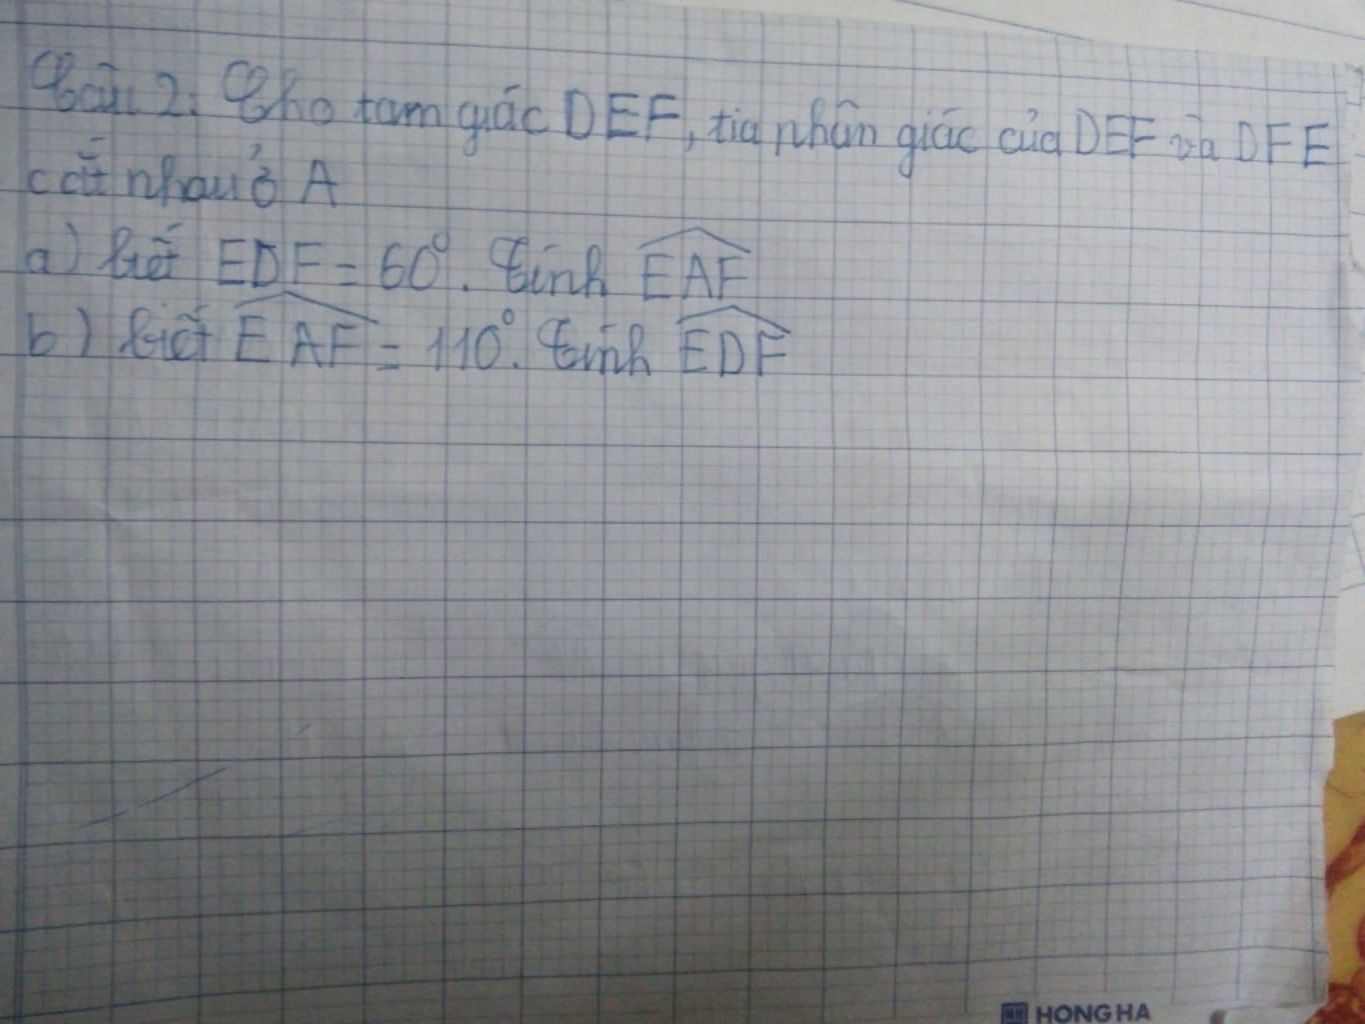 Câu 2. Cho tam giác DEF, tia nhân giác của DEF và DFE
cắt nhau ở A
a) biết EDF = 60°. Tính EAF
b) biết EAF = 110°. Tính EDF
HONG HA